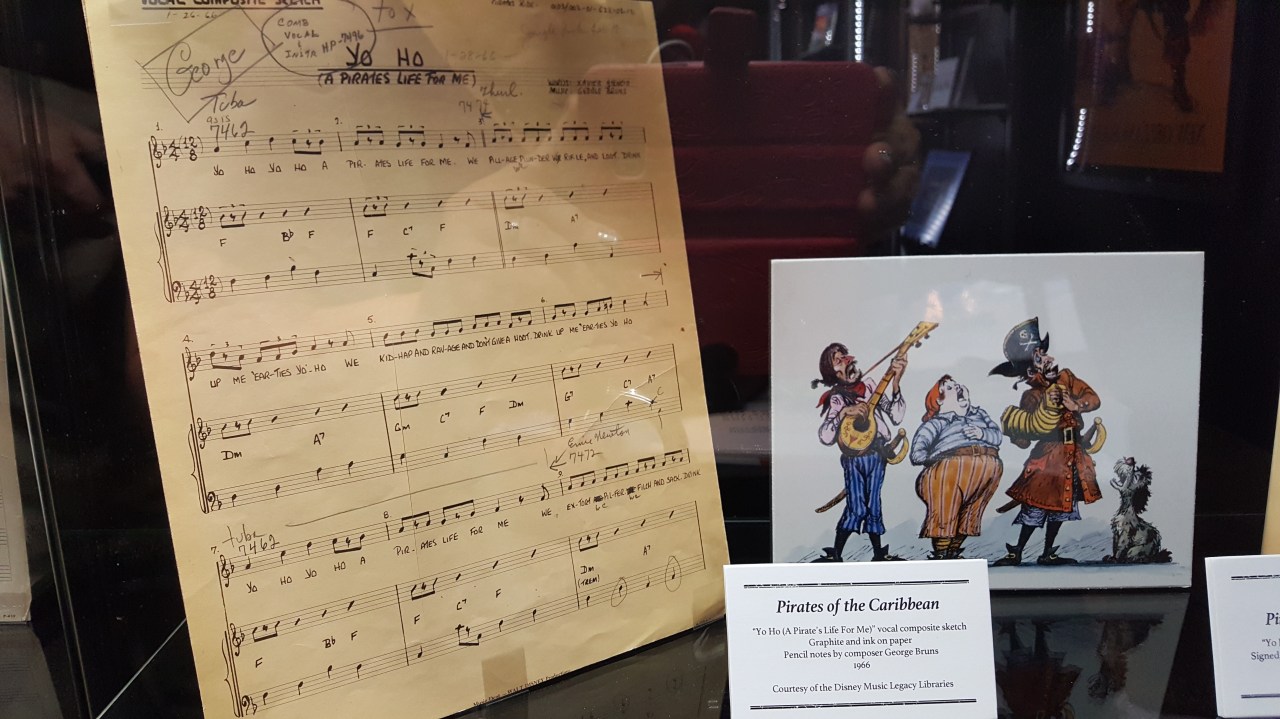 VOCAL COMPOSITE SKETCH
1-26-66
COMB
VOCAL
&
INSTR HP-7496
George
Tuba
YO HO
(A PIRATES LIFE FOR ME)
WORDS: XAVIER ATENCIO
MUSIC: GEORGE BRUNS
7472
1. 7462 2. 3.
12
8
YO HO YO HO A PIR-ATES LIFE FOR ME. WE PILL-AGE AND LOOT. DRINK
F Bb F F C7 F Dm A7
4. 5. 6.
UP ME 'EAR-TIES YO-HO WE KID-NAP AND RAV-AGE AND DON'T GIVE A HOOT. DRINK UP ME 'EAR-TIES YO HO
Dm A7 Gm C7 F Dm G7 C7 A7 C
Ernie Newton
7472
tuba
7462
7. 8. 9.
YO HO YO HO A PIR-ATES LIFE FOR ME WE EX-TORT PIL-FER FILCH AND SACK. DRINK
F Bb F F C7 F Dm A7
(TREM)
Pirates of the Caribbean
"Yo Ho (A Pirate's Life For Me)" vocal composite sketch
Graphite and ink on paper
Pencil notes by composer George Bruns
1966
Courtesy of the Disney Music Legacy Libraries
Pi
"Yo
Signed